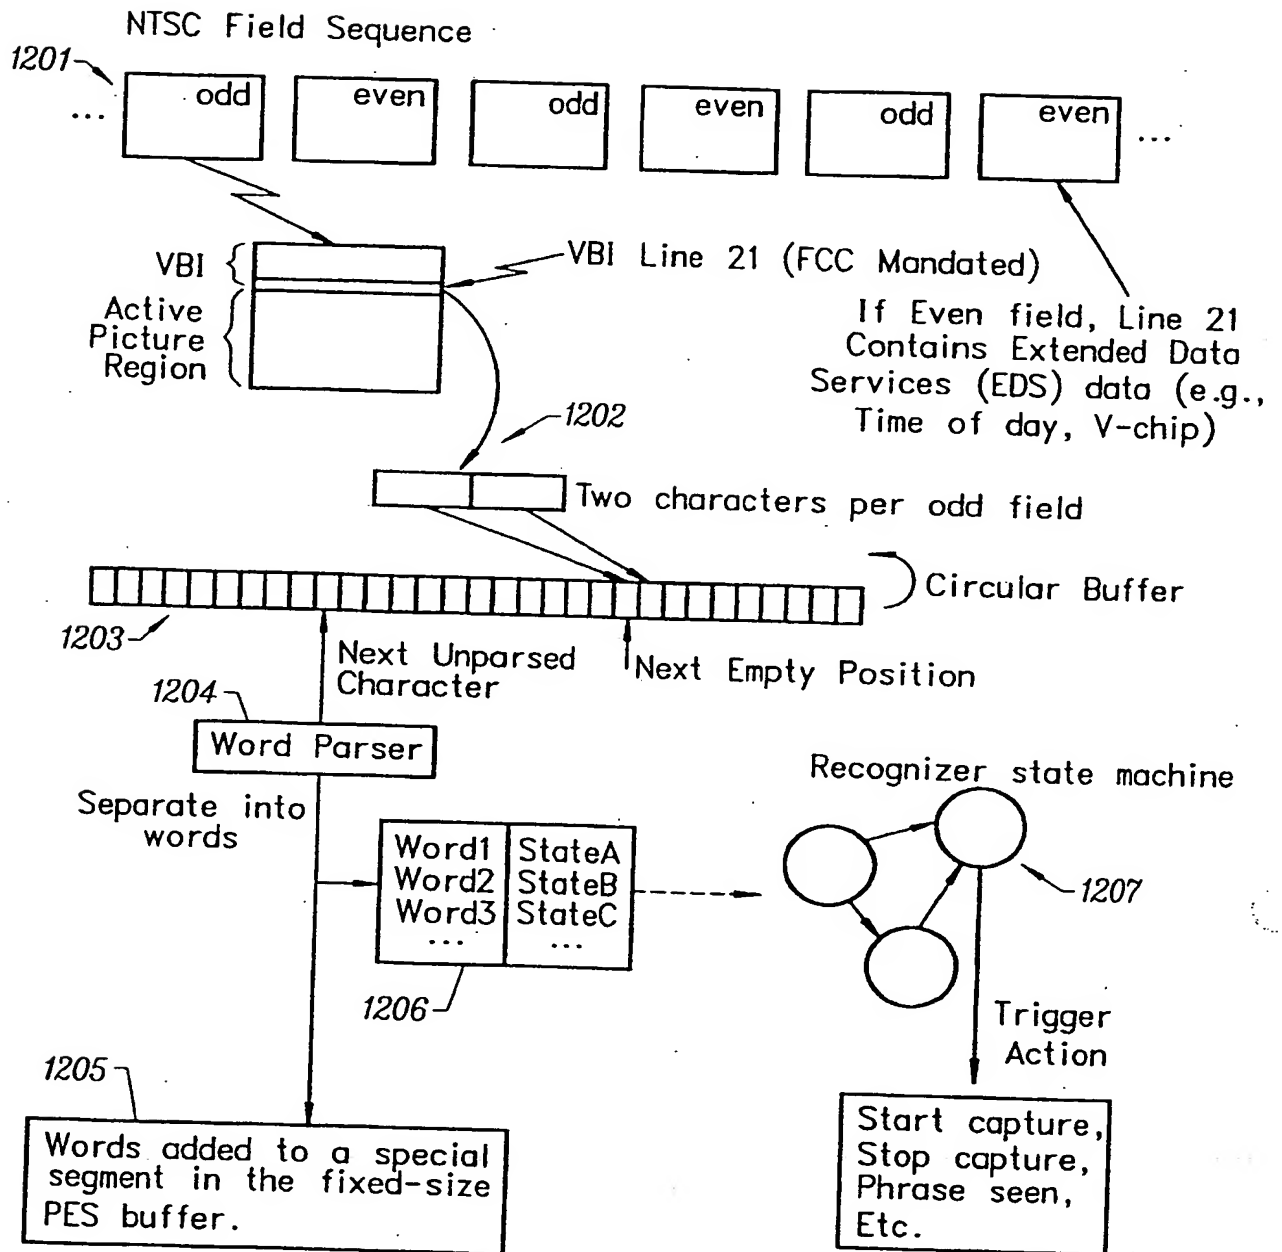 NTSC Field Sequence
1201
... odd even odd even odd even ...
VBI
VBI Line 21 (FCC Mandated)
Active
Picture
Region
If Even field, Line 21
Contains Extended Data
Services (EDS) data (e.g.,
Time of day, V-chip)
1202
Two characters per odd field
Circular Buffer
1203
Next Unparsed
Character
Next Empty Position
1204
Word Parser
Separate into
words
Recognizer state machine
Word1 StateA
Word2 StateB
Word3 StateC
... ...
1207
1206
Trigger
Action
1205
Words added to a special
segment in the fixed-size
PES buffer.
Start capture,
Stop capture,
Phrase seen,
Etc.